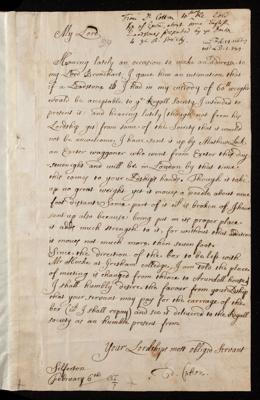 from Dr Cotton to the Lord
Bp of Exon, about some
Loadstone presented by ye
to ye R. Society.
My Lord
Having lately an occasion to make an address to
my Lord Brounkar, I gave him an intimation that
if a Loadstone I had in my custody of 60 weight
would be acceptable to ye Royall Society, I intended to
present it: and hearing lately (though not from his
Lordship yet) from some of the Society that it would
not be unwelcome, I have sent it up by Mathew Lock
an Exeter waggoner who came from Exeter this day
sevennight and will be in London by the time
this comes to your Lordships hands. Though it takes
up no great weight, yet it moves a needle about nine
foot distant: Some part of it is broken of, I have
sent up also because being put in its proper place
it adds much strength to it, for without this addition
it moves not much more then seven foot.
Since the direction of the box to be left with
Mr Hooke at Gresham colledge, I am told the place
of meeting is changed from thence to Arundell house,
I shall humbly desire the favour from your Lordship
that your servant may pay for the carriage of the
box (wch I shall repay) and see it delivered to the Royall
society as an humble present from
Your Lordships most obliged Servant
Ed: Cotton
February 6th